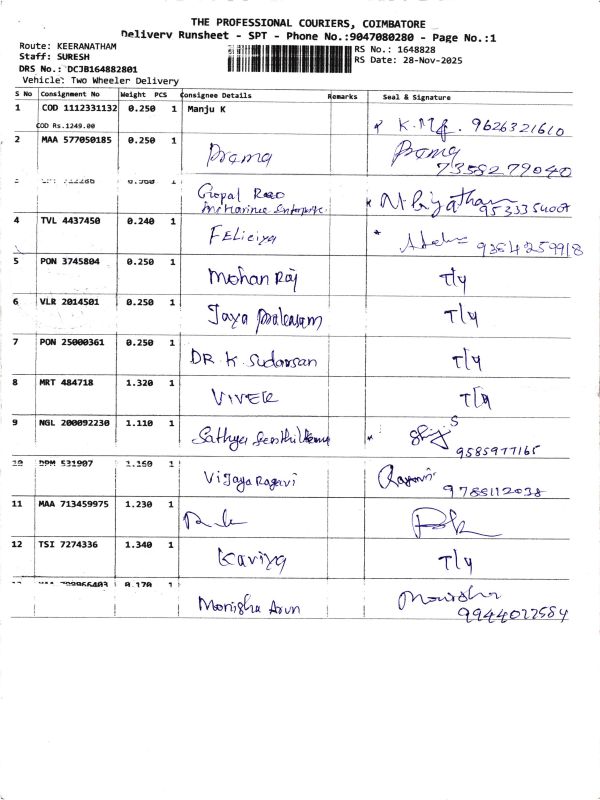 THE PROFESSIONAL COURIERS, COIMBATORE
Delivery Runsheet - SPT - Phone No.:9047080280 - Page No.:1
Route: KEERANATHAM
Staff: SURESH
DRS No.: DCJB164882801
Vehicle: Two Wheeler Delivery
RS No.: 1648828
RS Date: 28-Nov-2025
S No Consignment No Weight PCS Consignee Details Remarks Seal & Signature
1 COD 1112331132 0.250 1 Manju K
COD Rs.1249.00
9626321610
2 MAA 577050185 0.250 1 Prema Prema
7358279040
0.300 1 Gopal Rao
4 TVL 4437450 0.240 1 FEliciya
5 PON 3745804 0.250 1 Mohan Raj T/y
6 VLR 2014501 0.250 1 Jaya Prakasam T/y
7 PON 25000361 0.250 1 DR. K. Sudarsan T/y
8 MRT 484718 1.320 1 VIVEK T/y
9 NGL 200092230 1.110 1 Sathya
9585977165
10 DPM 531907 1.160 1 Vijaya Ragavi Ragavi
9788112038
11 MAA 713459975 1.230 1
12 TSI 7274336 1.340 1 Kaviya T/y
0.170 1
Monisha Arun Monisha
9944022584